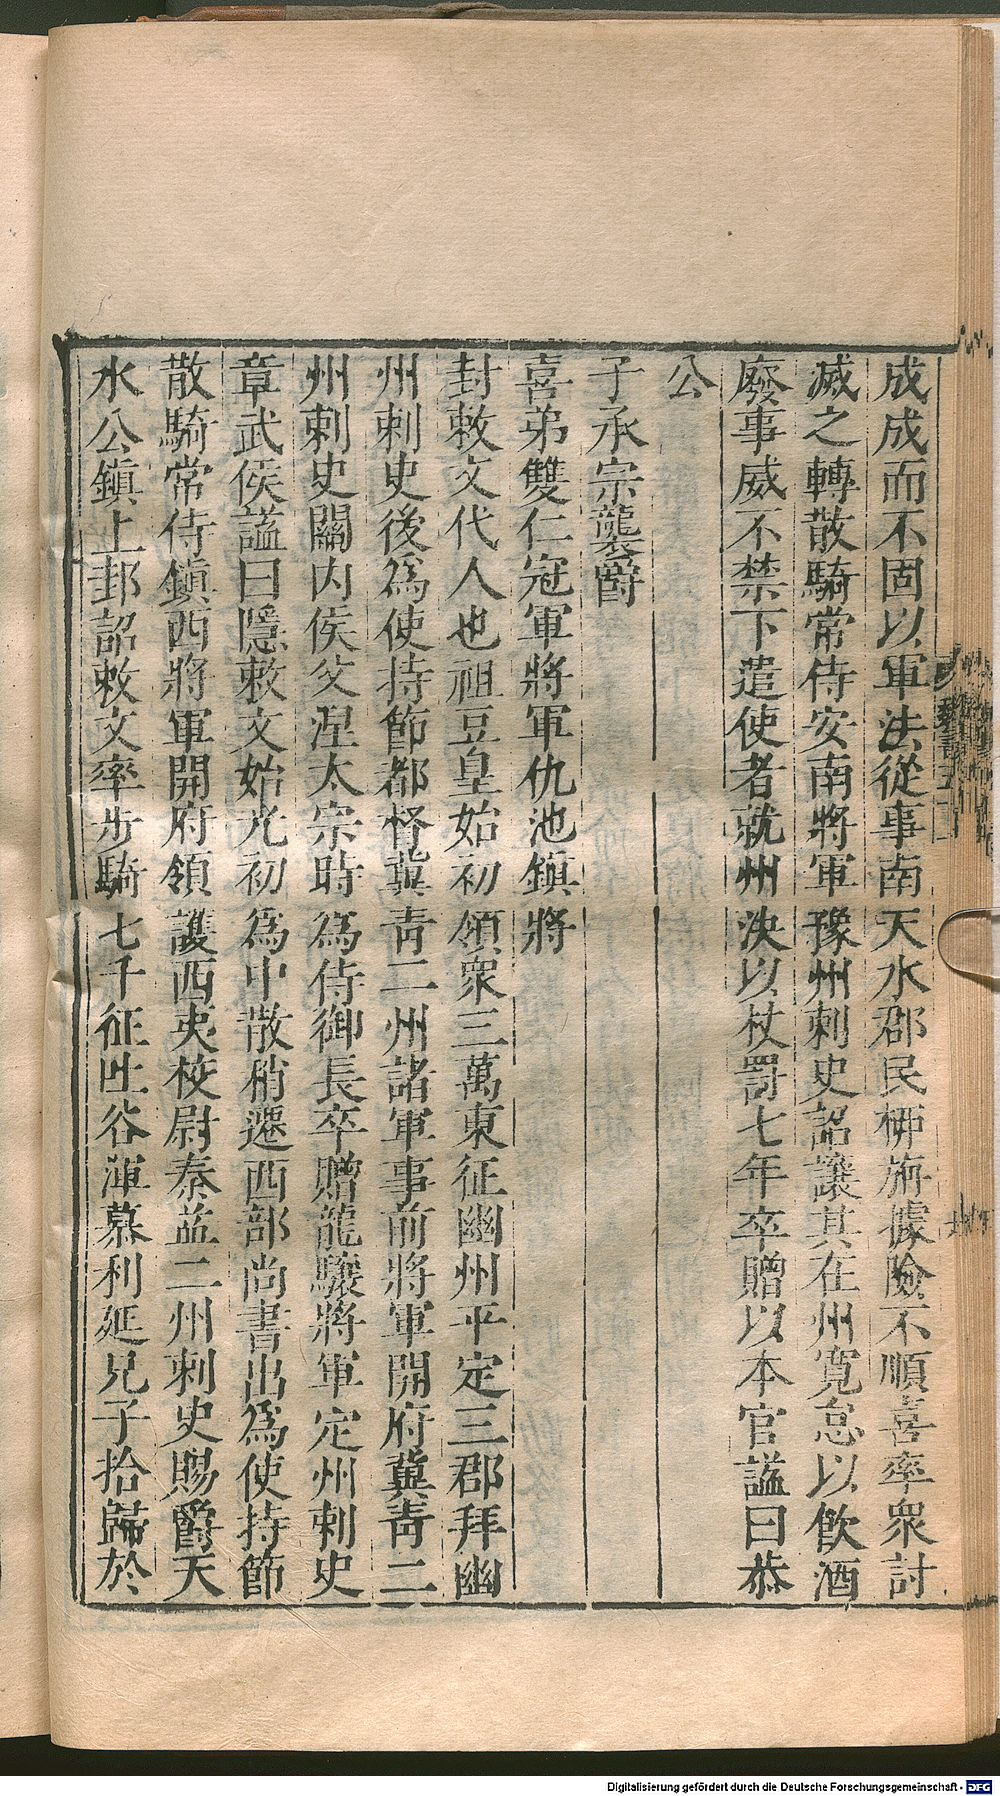 成成而不固以軍法從事南天水郡民栁旃據險不順喜率衆討
滅之轉散騎常侍安南將軍豫州刺史詔讓其在州寬怠以飲酒
廢事威不禁下遣使者就州決以杖罰七年卒贈以本官謚曰恭
公
子承宗襲爵
喜弟雙仁冠軍將軍仇池鎮將
封敕文代人也祖豆皇始初領衆三萬東征幽州平定三郡拜幽
州刺史後爲使持節都督冀青二州諸軍事前將軍開府冀青二
州刺史關内侯父涅太宗時爲侍御長卒贈龍驤將軍定州刺史
章武侯謚曰隱敕文始光初爲中散稍遷西部尚書出爲使持節
散騎常侍鎮西將軍開府領護西夷校尉秦益二州刺史賜爵天
水公鎮上邽詔敕文率步騎七千征吐谷渾慕利延兄子拾歸於
Digitalisierung gefördert durch die Deutsche Forschungsgemeinschaft - DFG